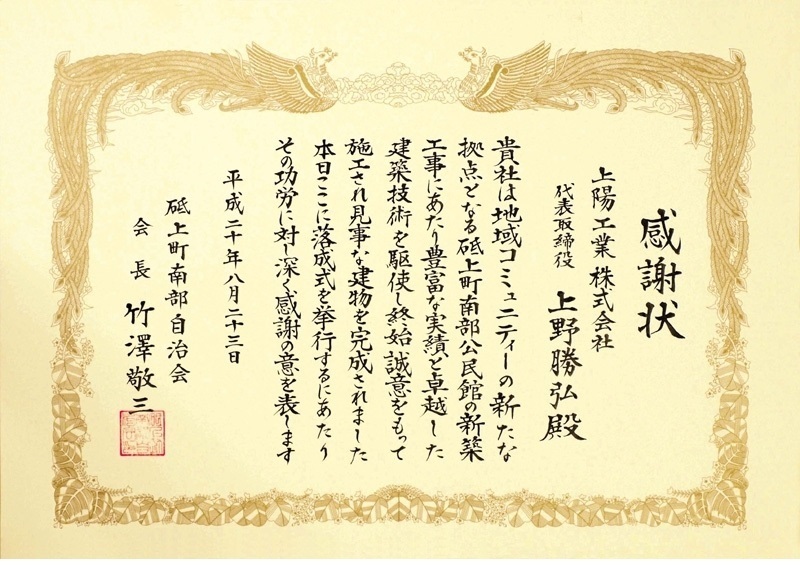 感謝状
上陽工業株式会社
代表取締役 上野勝弘殿
貴社は地域コミュニティーの新たな
拠点となる砥上町南部公民館の新築
工事にあたり豊富な実績と卓越した
建築技術を駆使し終始誠意をもって
施工され見事な建物を完成されました
本日ここに落成式を挙行するにあたり
その功労に対し深く感謝の意を表します
平成二十年八月二十三日
砥上町南部自治会
会長 竹澤敬三